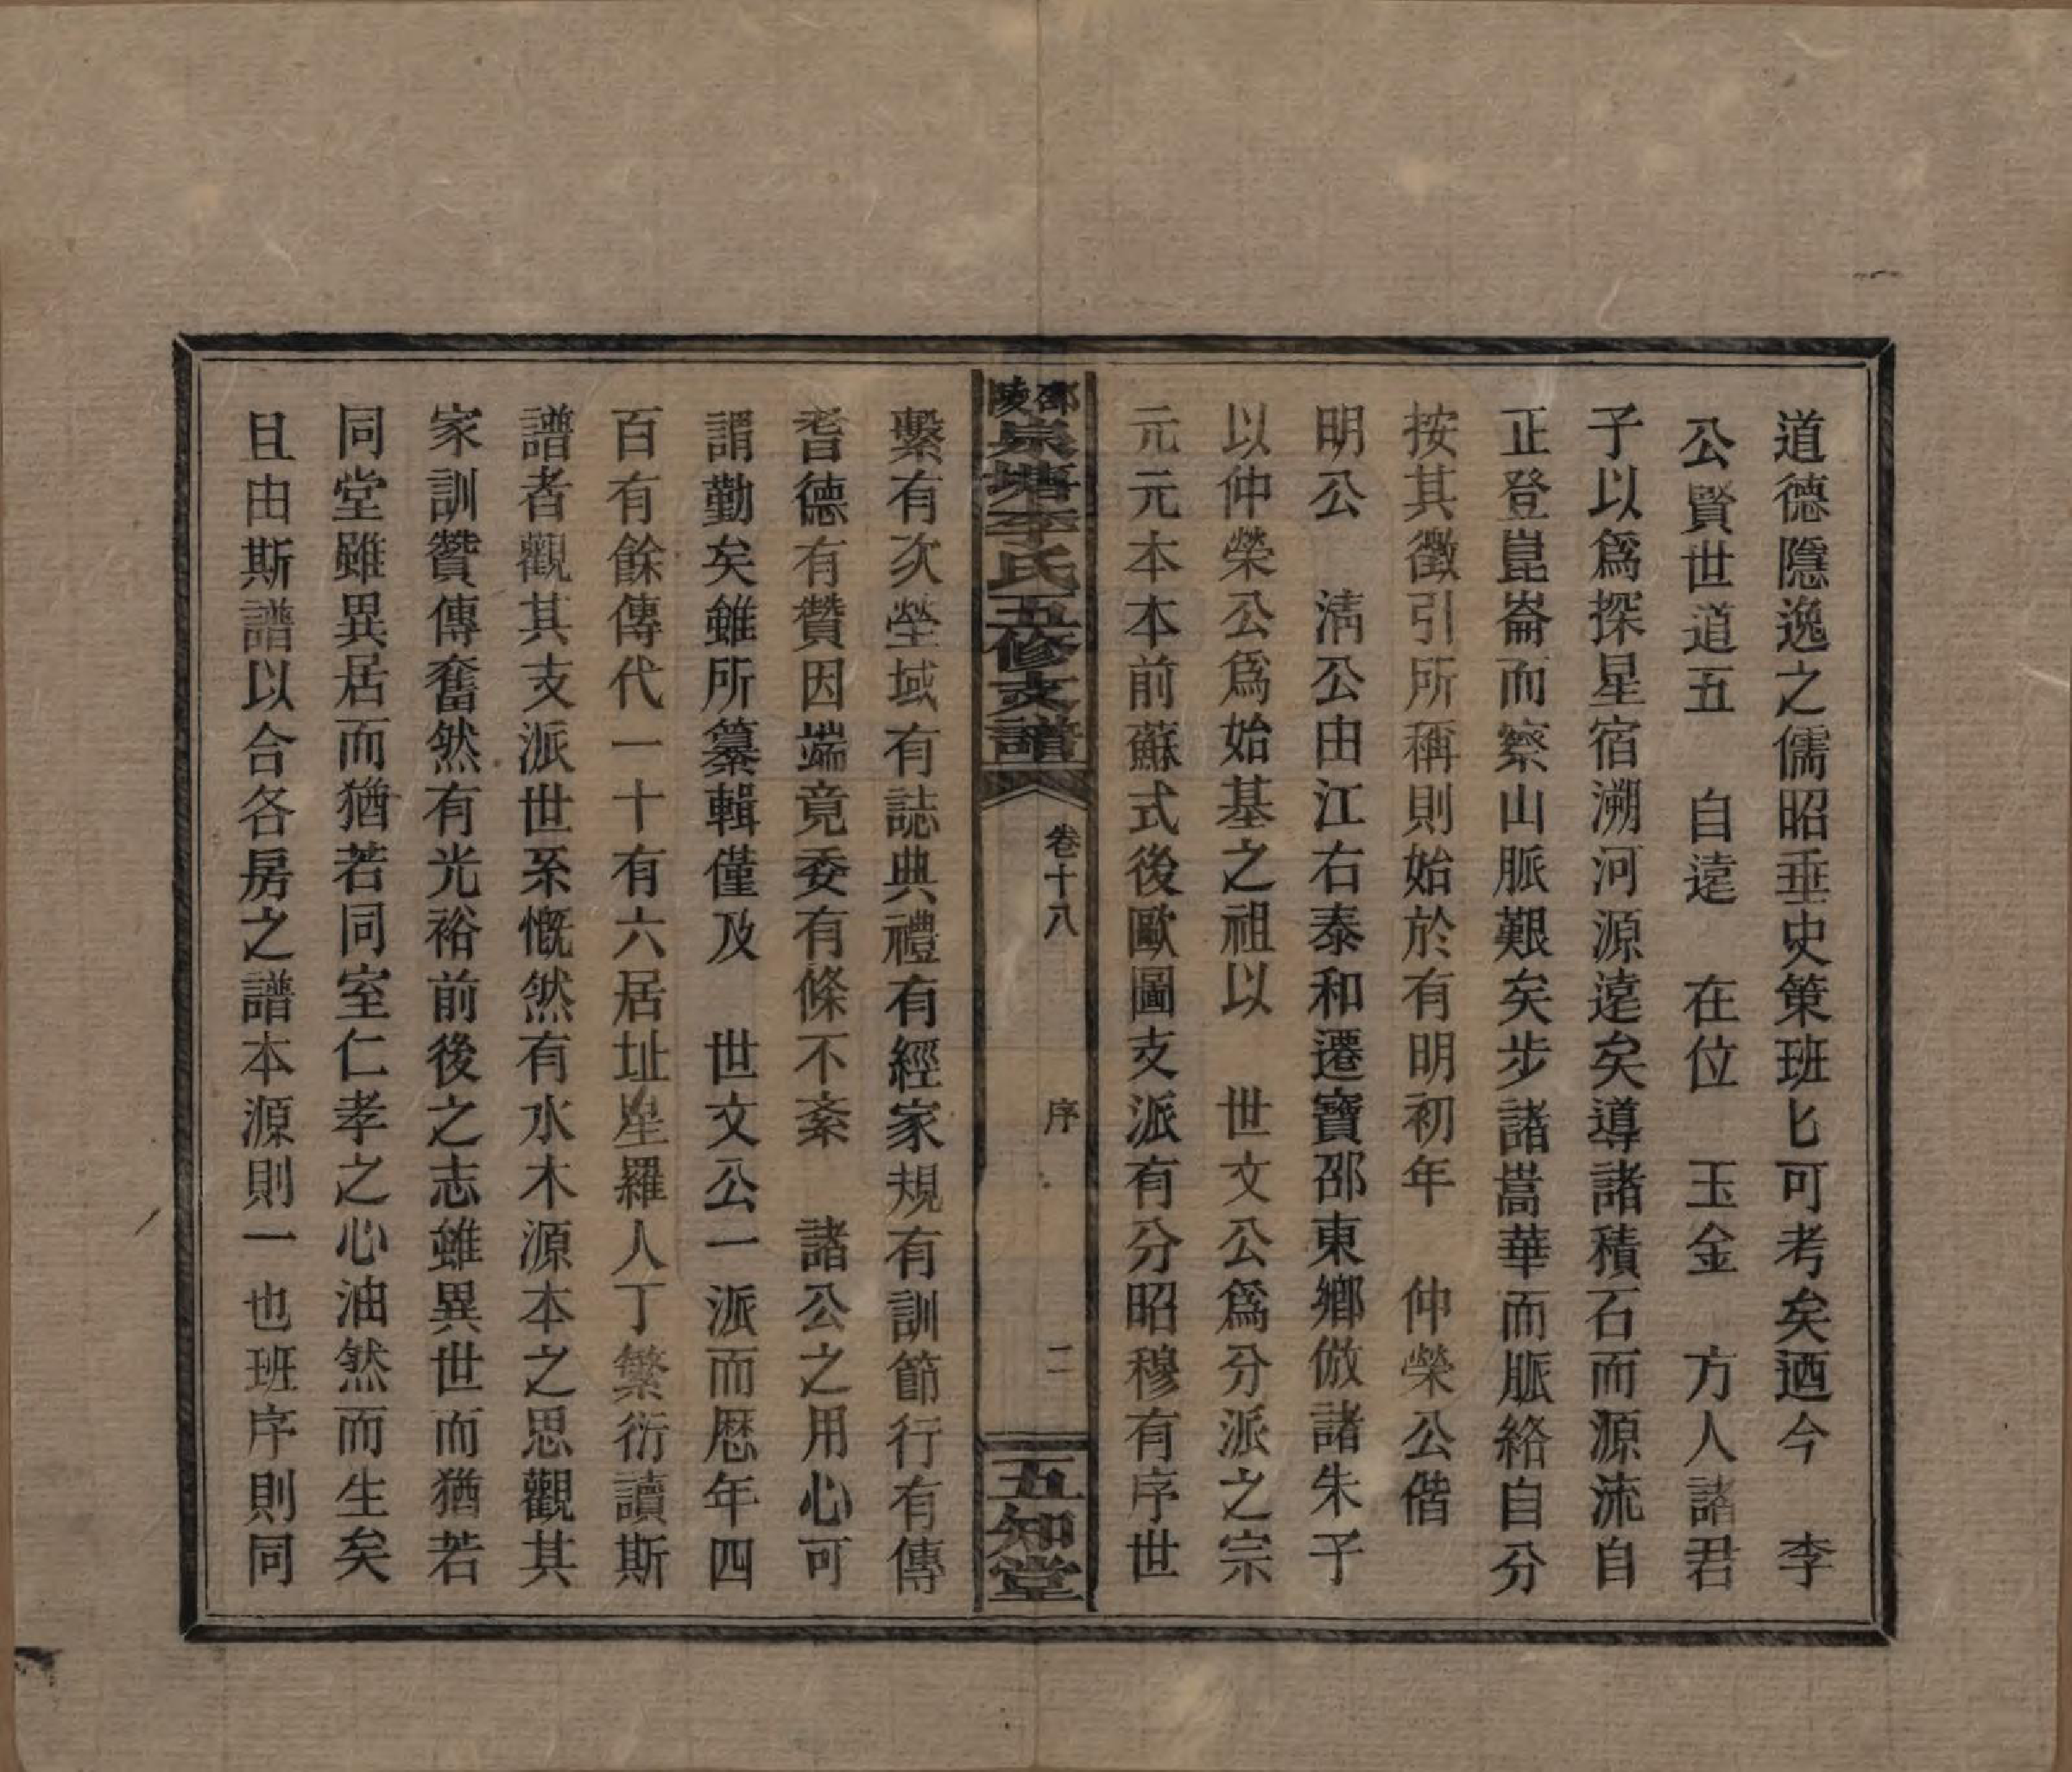 道德隱逸之儒昭垂史策班匕可考矣迺今　李
公賢世道五　自遠　在位　玉金　方人諸君
子以爲探星宿溯河源遠矣導諸積石而源流自
正登崑崙而察山脈艱矣步諸嵩華而脈絡自分
按其徵引所稱則始於有明初年　仲榮公偕
明公　淸公由江右泰和遷寶邵東鄉倣諸朱子
以仲榮公爲始基之祖以　世文公爲分派之宗
元元本本前蘇式後歐圖支派有分昭穆有序世
邵陵泉塘李氏五修支譜
卷十八　序　二
五知堂
繫有次塋域有誌典禮有經家規有訓節行有傳
耆德有贊因端竟委有條不紊　諸公之用心可
謂勤矣雖所纂輯僅及　世文公一派而歷年四
百有餘傳代一十有六居址星羅人丁繁衍讀斯
譜者觀其支派世系慨然有水木源本之思觀其
家訓贊傳奮然有光裕前後之志雖異世而猶若
同堂雖異居而猶若同室仁孝之心油然而生矣
且由斯譜以合各房之譜本源則一也班序則同